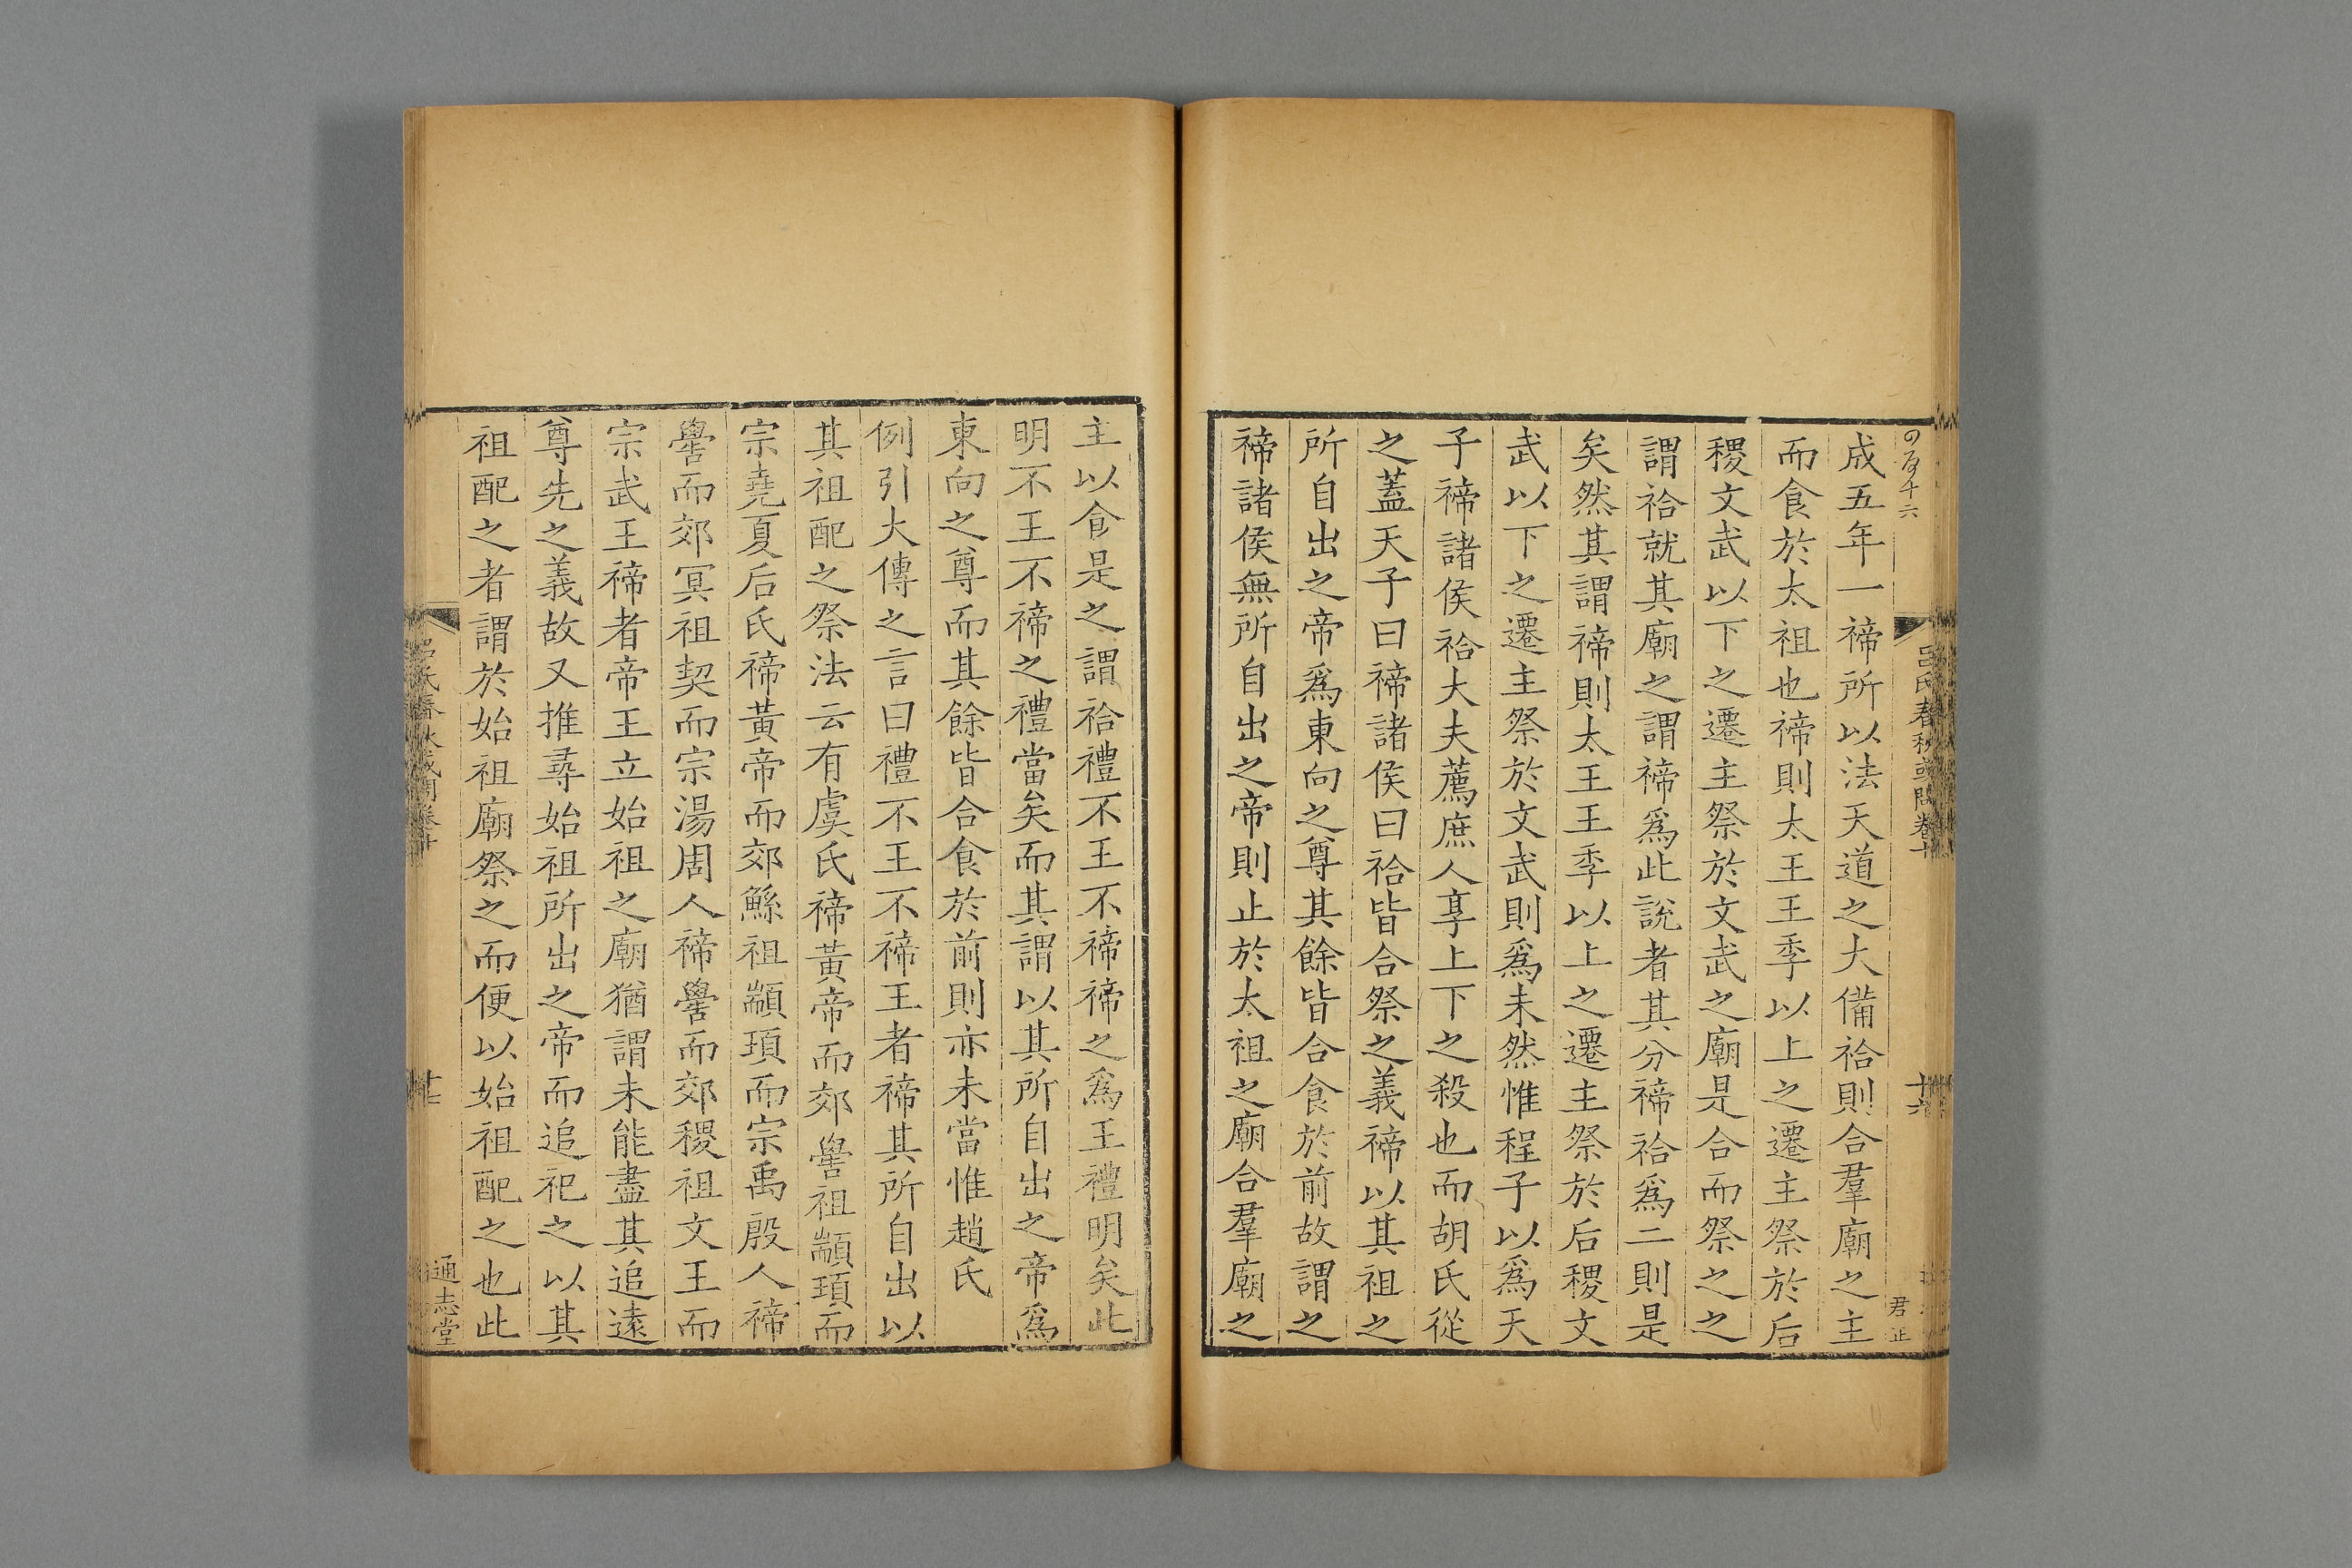 成五年一禘所以法天道之大備祫則合羣廟之主
而食於太祖也禘則太王王季以上之遷主祭於后
稷文武以下之遷主祭於文武之廟是合而祭之之
謂祫就其廟之謂禘爲此說者其分禘祫爲二則是
矣然其謂禘則太王王季以上之遷主祭於后稷文
武以下之遷主祭於文武則爲未然惟程子以爲天
子禘諸侯祫大夫薦庶人享上下之殺也而胡氏從
之蓋天子曰禘諸侯曰祫皆合祭之義禘以其祖之
所自出之帝爲東向之尊其餘皆合食於前故謂之
禘諸侯無所自出之帝則止於太祖之廟合羣廟之
主以食是之謂祫禮不王不禘禘之爲王禮明矣此
明不王不禘之禮當矣而其謂以其所自出之帝爲
東向之尊而其餘皆合食於前則亦未當惟趙氏
例引大傳之言曰禮不王不禘王者禘其所自出以
其祖配之祭法云有虞氏禘黃帝而郊嚳祖顓頊而
宗堯夏后氏禘黃帝而郊鯀祖顓頊而宗禹殷人禘
嚳而郊冥祖契而宗湯周人禘嚳而郊稷祖文王而
宗武王禘者帝王立始祖之廟猶謂未能盡其追遠
尊先之義故又推尋始祖所出之帝而追祀之以其
祖配之者謂於始祖廟祭之而便以始祖配之也此
呂氏春秋或問卷十
十六
君正
通志堂